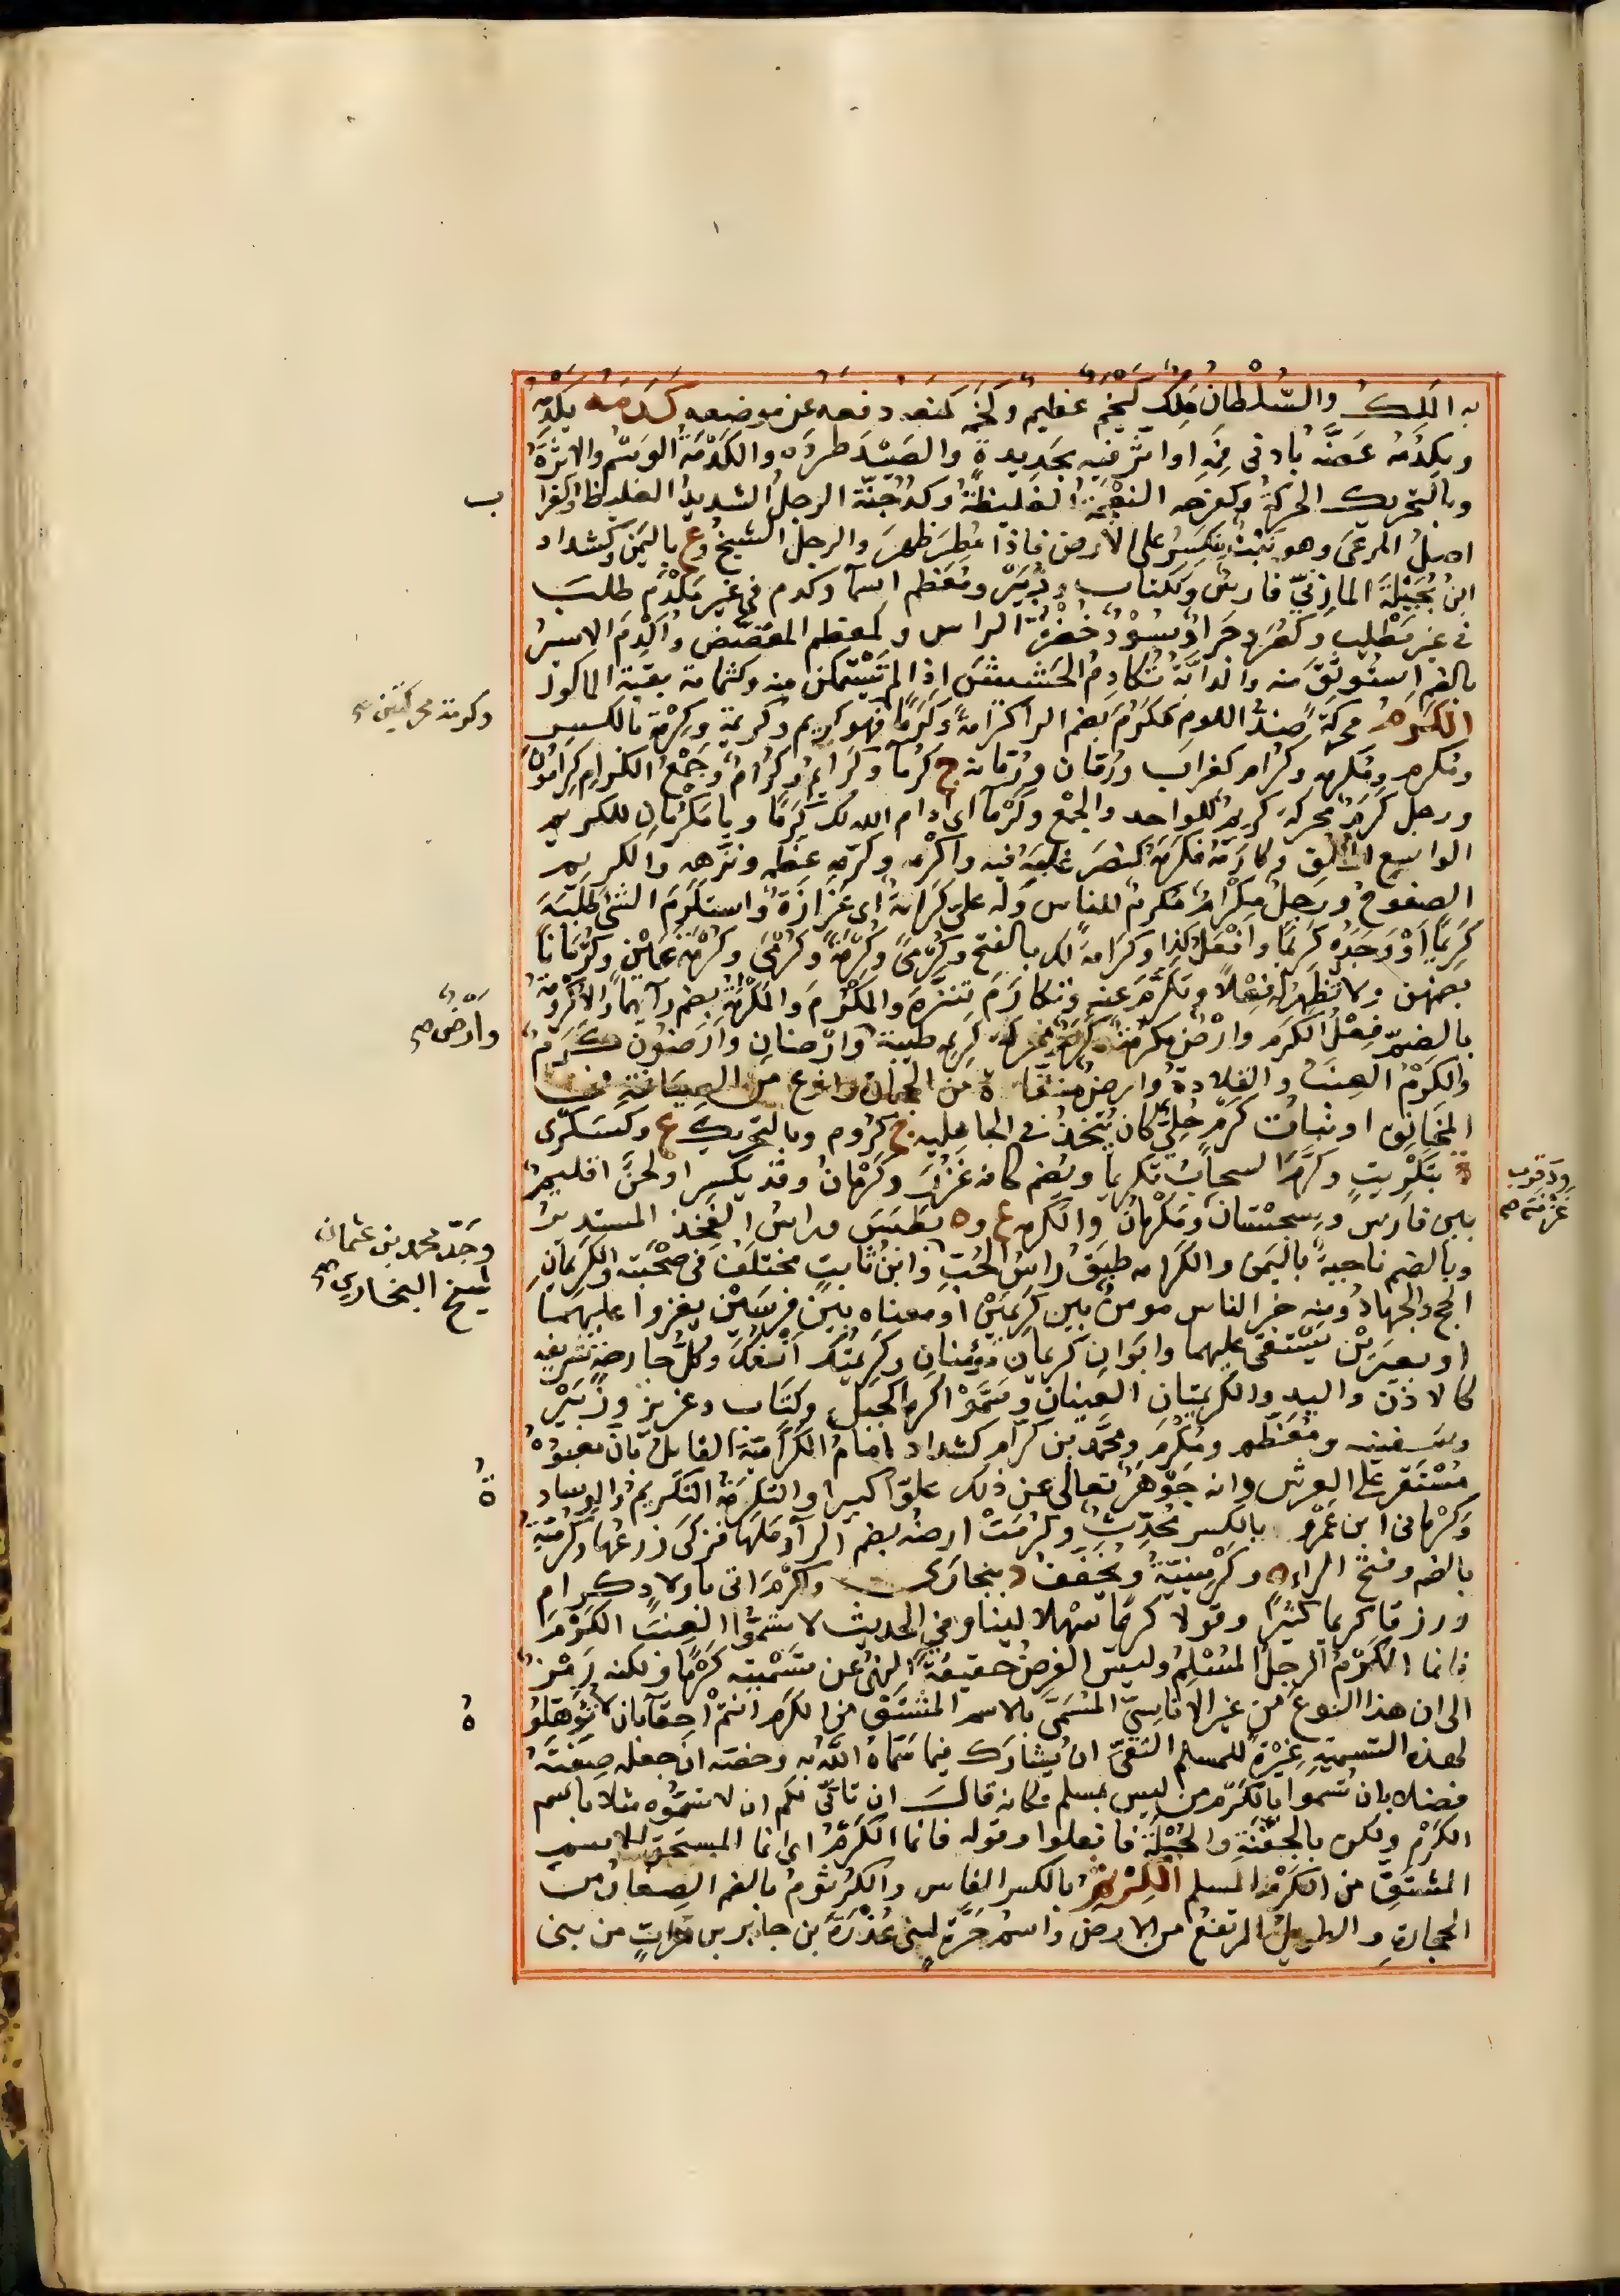 به الملك والسُّلْطانُ مَلِكٌ كَيْخَمٌ عظيمٌ وكَخَمَه كمنعه دفعه عن موضعه كَدَمَه يَكْدِمُه
ويَكْدُمُه عَضَّه بأدنى فَمِه او اثر فيه بحديدةٍ والصَيْدَ طرده والكَدْمَةُ الوَسْمُ والاثرةُ
وبالتحريك الحركةُ وكفرحه النعجةُ الغليظةُ وكدُجُنّة الرجلُ الشديدُ الغليظُ وكغراب
اصلُ المرعى وهو نَبْتٌ يتكسر على الارض فاذا مُطِرَ ظهرَ والرجل الشيخ وع باليمن وكشداد
ابنُ بُجَيْلَةَ المازنيّ فارسٌ وككتاب وزُبَيْر ومُعَظم اسما وكدم في غير مَكْدَمٍ طلبَ
في غير مَطْلبٍ وكصُرَدٍ جَرادٌ سُوْدٌ خُضْرُ الراس وكمعظم المعضض وأُكْدِمَ الاسيرُ
بالضم استُوثِقَ منه والدابةُ تُكادِمُ الحشيشَ اذا لم تَسْتَمْكن منه وكثمامة بقية المأكول
الكَرَمُ محركةً ضدُّ اللوم كَرُمَ بضم الرا كرامةً وكَرَمًا فهو كريم وكريمة وكِرْمَة بالكسر
ومُكرم ومُكرمه وكرام كغراب ورُمّان ورُمّانة ج كرما وكرام وكرائم وجَمْعُ الكُرام كُرامون
ورجل كَرَمٌ محركة كريمٌ للواحد والجمع وكَرْمًا اى ادام الله لك كَرَمًا ويا مَكْرُمانُ للكريم
الواسع الخُلُقِ وكارَمَهُ فكَرَمَهُ كنصره غلبه فيه واكْرَمه وكَرّمه عظمه ونزهه والكريم
الصفوح ورجل مِكْرامٌ مُكرِمٌ للناس وله عليّ كرامةٌ اى عَزازَةٌ واستكْرَمَ الشئ طَلَبَه
كَرِيمًا او وَجَدَه كَرِيمًا وافْعَلْ كذا وكَرامةً لك بالفتح وكُرْمًى وكُرْمَةً وكُرْمَى وكُرْمَةَ عَيْنٍ وكُرْمانًا
بضمهن ولا تُظْهِرُ له فِعْلاً وتَكَرَّمَ عنه وتكارَمَ تَنَزَّهَ والمَكْرُمَ والمَكْرُمَةُ بضم رائهما والاُكْرُومَةُ
بالضمّ فِعْلُ الكرَم وارْضٌ مكرُمَةٌ وكَرَمٌ محركة كريمة طيبة وارْضانِ وأَرَضُونَ كَرَمٌ
والكَرْمُ العِنَبُ والقِلادةُ وارضٌ مُنَقّاةٌ من الحجارة ونوعٌ من الصِياغَةِ في
المخانِق او نباتُ كَرْمٍ حُلِيٌّ كان يُتّخذُ في الجاهلية ج كُروم وبالتحريك ع وكسكرى
ة بتَكْرِيتٍ وكَرَّمَ السحابُ تَكريمًا ويُضم كافه غَزُرَ وكَرْمانُ وقد يكسر او لحنٌ اقليمٌ
بين فارس وسِجِسْتان ومُكْرانُ والكَرْمة ع وة بطَبَسَ وراسُ الفَخِذِ المستدير
وبالضم ناحيةٌ باليمن والكَرامة طَبَقُ راسِ الحُبِّ وابنُ ثابتٍ مختلَفٌ في صُحْبته والكريمان
الحج والجهادُ ومنه خير الناس مومنٌ بين كريمَيْنِ او معناه بين فَرَسَيْن يغزوا عليهما
او بعيرَيْن يَسْتقي عليهما وابَوان كريمان مُؤْمنان وكَرِيمَتُكَ اَنْفُكَ وكلُّ جارحةٍ شريفه
كالاذن واليد والكريمتان العينان وسَمَّوْا كَرْمًا كجبل وكِتَاب وعزيزٍ وزُبَيْرٍ
وسفينه ومُعَظّم ومُكْرَم ومُحَمّد بن كرّام كشداد امامُ الكَرّاميّةِ القايلُ بان معبودَه
مُسْتَقِرٌّ على العرش وانه جَوْهَرٌ تعالى عن ذلك علوّا كبيرا والتكرمَةُ التكريم والوساد
وكَرْمانى ابن عَمْرو بالكسر مُحَدِّثٌ وكَرُمَتْ ارضُه بضم الرا دَمَلَها فزكى زرعُها وكُرَمِيَّةٌ
بالضم وفتح الراء ة وكَرْمِينِيّة ويُخَفّفُ د ببخارى واكْرَمَ اتى باولادٍ كرام
ورزقا كريما كثيرا وقولا كريمًا سَهْلا لينا وفي الحديث لا تسَمُّوا العِنَبَ الكَرْمَ
فانما الكَرْمُ الرجلُ المُسْلِمُ وليس الغرضُ حقيقةَ النهي عن تَسْمِيَتِه كَرْمًا ولكنه رَمْزٌ
الى ان هذا النوعَ من غير الاناسِيِّ المُسَمَّى بالاسم المشْتَقِّ من الكَرَم انتمْ احِقّاء بان لا تُؤَهِّلُوه
لهذه التسمية غَيْرَةً للمسلم التقيِّ ان يشارَك فيما سَمّاهُ اللّٰه به وخصّه ان جعله صِفَتَهُ
فضلا بان تُسَموا بالكَرْم من ليس بمسلم وكانه قالَ ان تأتّى لكم ان لا تسَمُّوه مثلا باسم
الكَرْم ولكن بالجَفْنَةِ والحَبْلَةِ فافعلوا وقوله فانما الكَرْمُ اى انما المستحق للاسم
المشتقّ من الكَرَمِ المسلم الكِرْزِيمُ بالكسر الفاس والكُرْثومُ بالضم الصفا من
الحجارةِ والطويلُ المرتفعُ من الارض واسم حَرَّة لبنى عُذْرَةَ بن جابر بن من بنى
ب
وكرمة محركتين صح
وأرَضٌ صح
وجَدّ محمد بن عثمان
شيخ البخاري صح
ودقرب
غزنة صح
ةُ
هُ